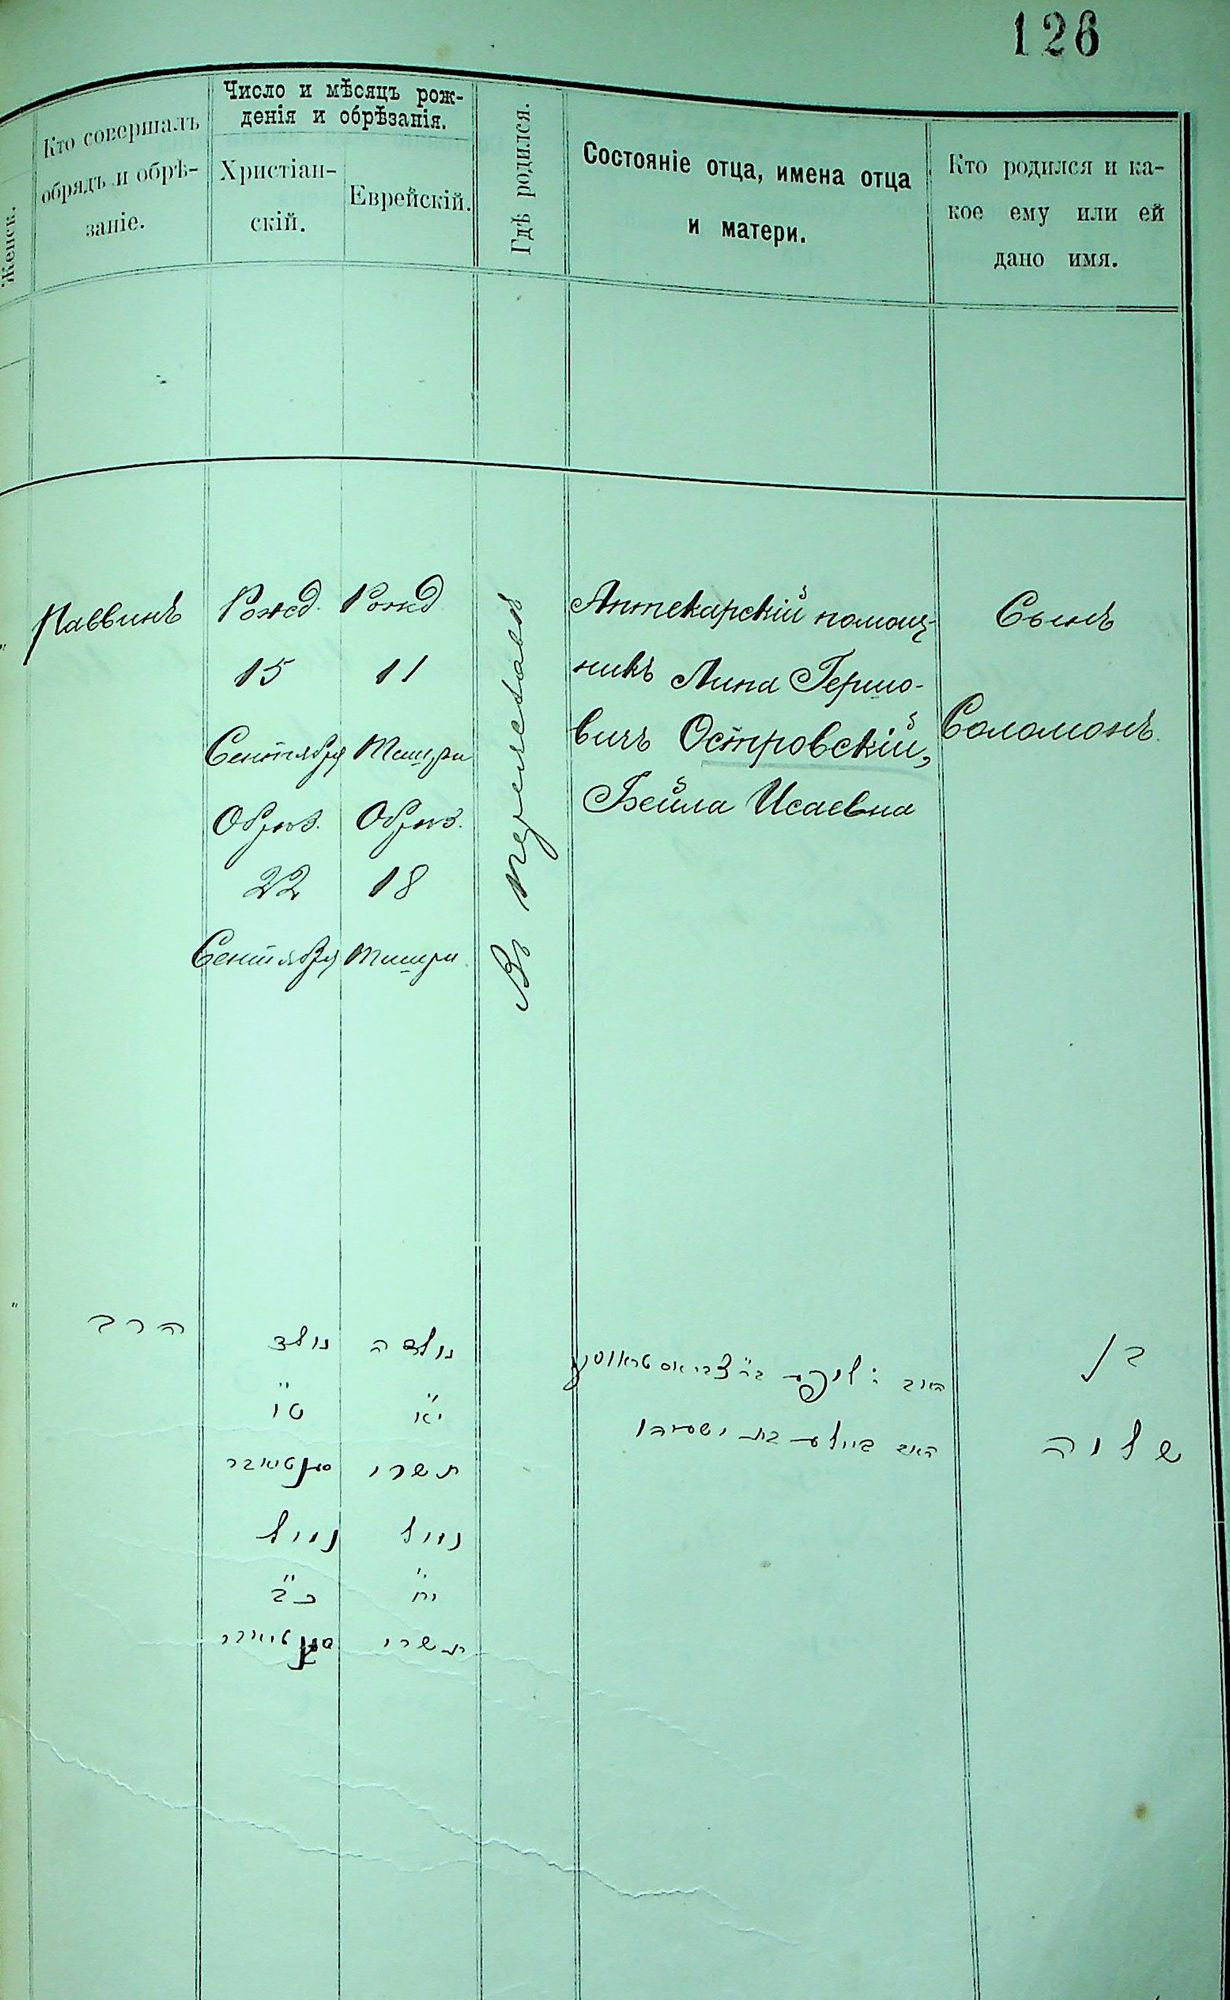 126
Женск.
Кто совершалъ
обрядъ и обрѣ-
заніе.
Число и мѣсяцъ рож-
денія и обрѣзанія.
Христіан-
скій.
Еврейскій.
Гдѣ родился.
Состояніе отца, имена отца
и матери.
Кто родился и ка-
кое ему или ей
дано имя.
Раввинъ
Рожд.
15
Сентября
Обрѣз.
22
Сентября
Рожд
11
Тишри
Обрѣз.
18
Тишри
Въ Переяславѣ
Аптекарскій помощ-
никъ Липа Гершо-
вичъ Островскій,
Бейла Исаевна
Сынъ
Соломонъ.
הרב
נולד
ט"ו
נימול
כ"ב
י"א
תשרי
נימול
י"ח
תשרי
האב
בן